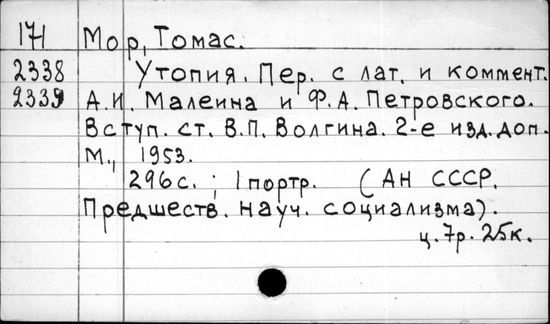 171 Мор, Томас.
2338 Утопия. Пер. с лат. и коммент.
2339 А.И. Малеина и Ф.А. Петровского.
Вступ. ст. В.П. Волгина. 2-е изд. доп.
М., 1953.
296с.; 1 портр. (АН СССР.
Предшеств. науч. социализма).
ц. 7р. 25к.